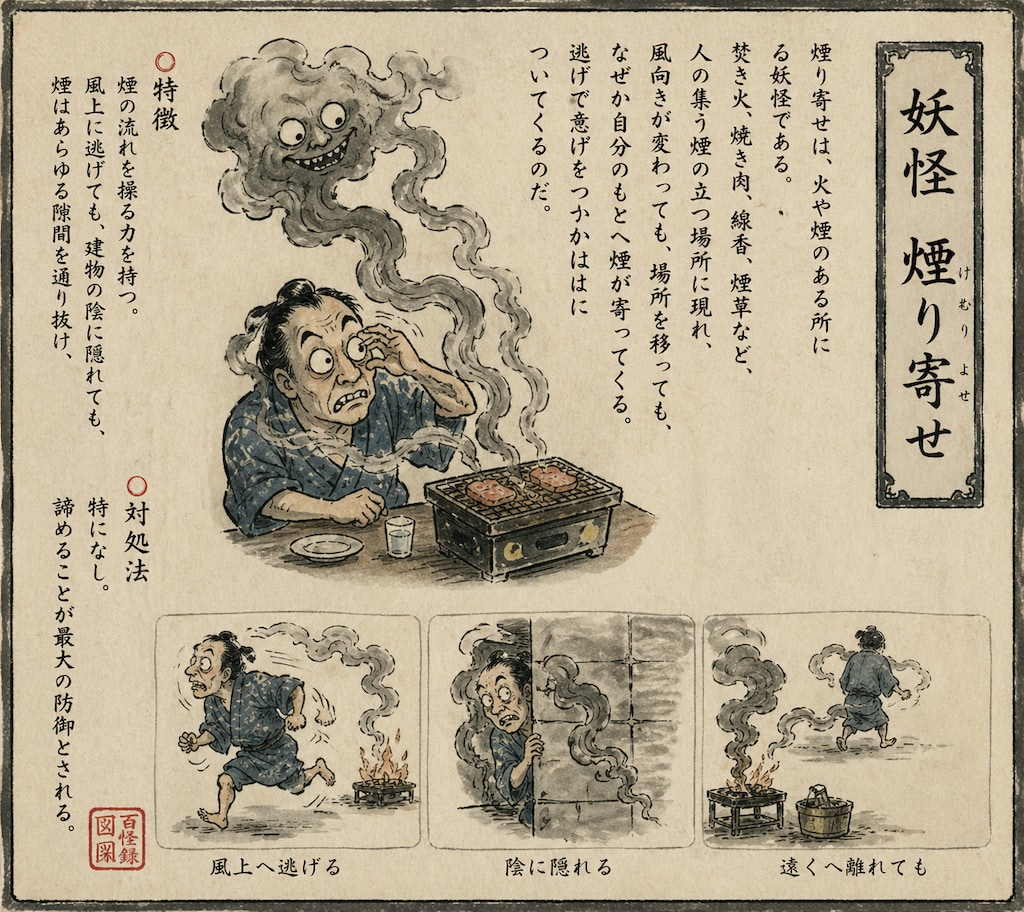 妖怪 煙り寄せ
けむりよせ
煙り寄せは、火や煙のある所に
る妖怪である。
焚き火、焼き肉、線香、煙草など、
人の集う煙の立つ場所に現れ、
風向きが変わっても、場所を移っても、
なぜか自分のもとへ煙が寄ってくる。
逃げで意げをつかかははに
ついてくるのだ。
○特徴
煙の流れを操る力を持つ。
風上に逃げても、建物の陰に隠れても、
煙はあらゆる隙間を通り抜け、
○対処法
特になし。
諦めることが最大の防御とされる。
風上へ逃げる
陰に隠れる
遠くへ離れても
百怪録